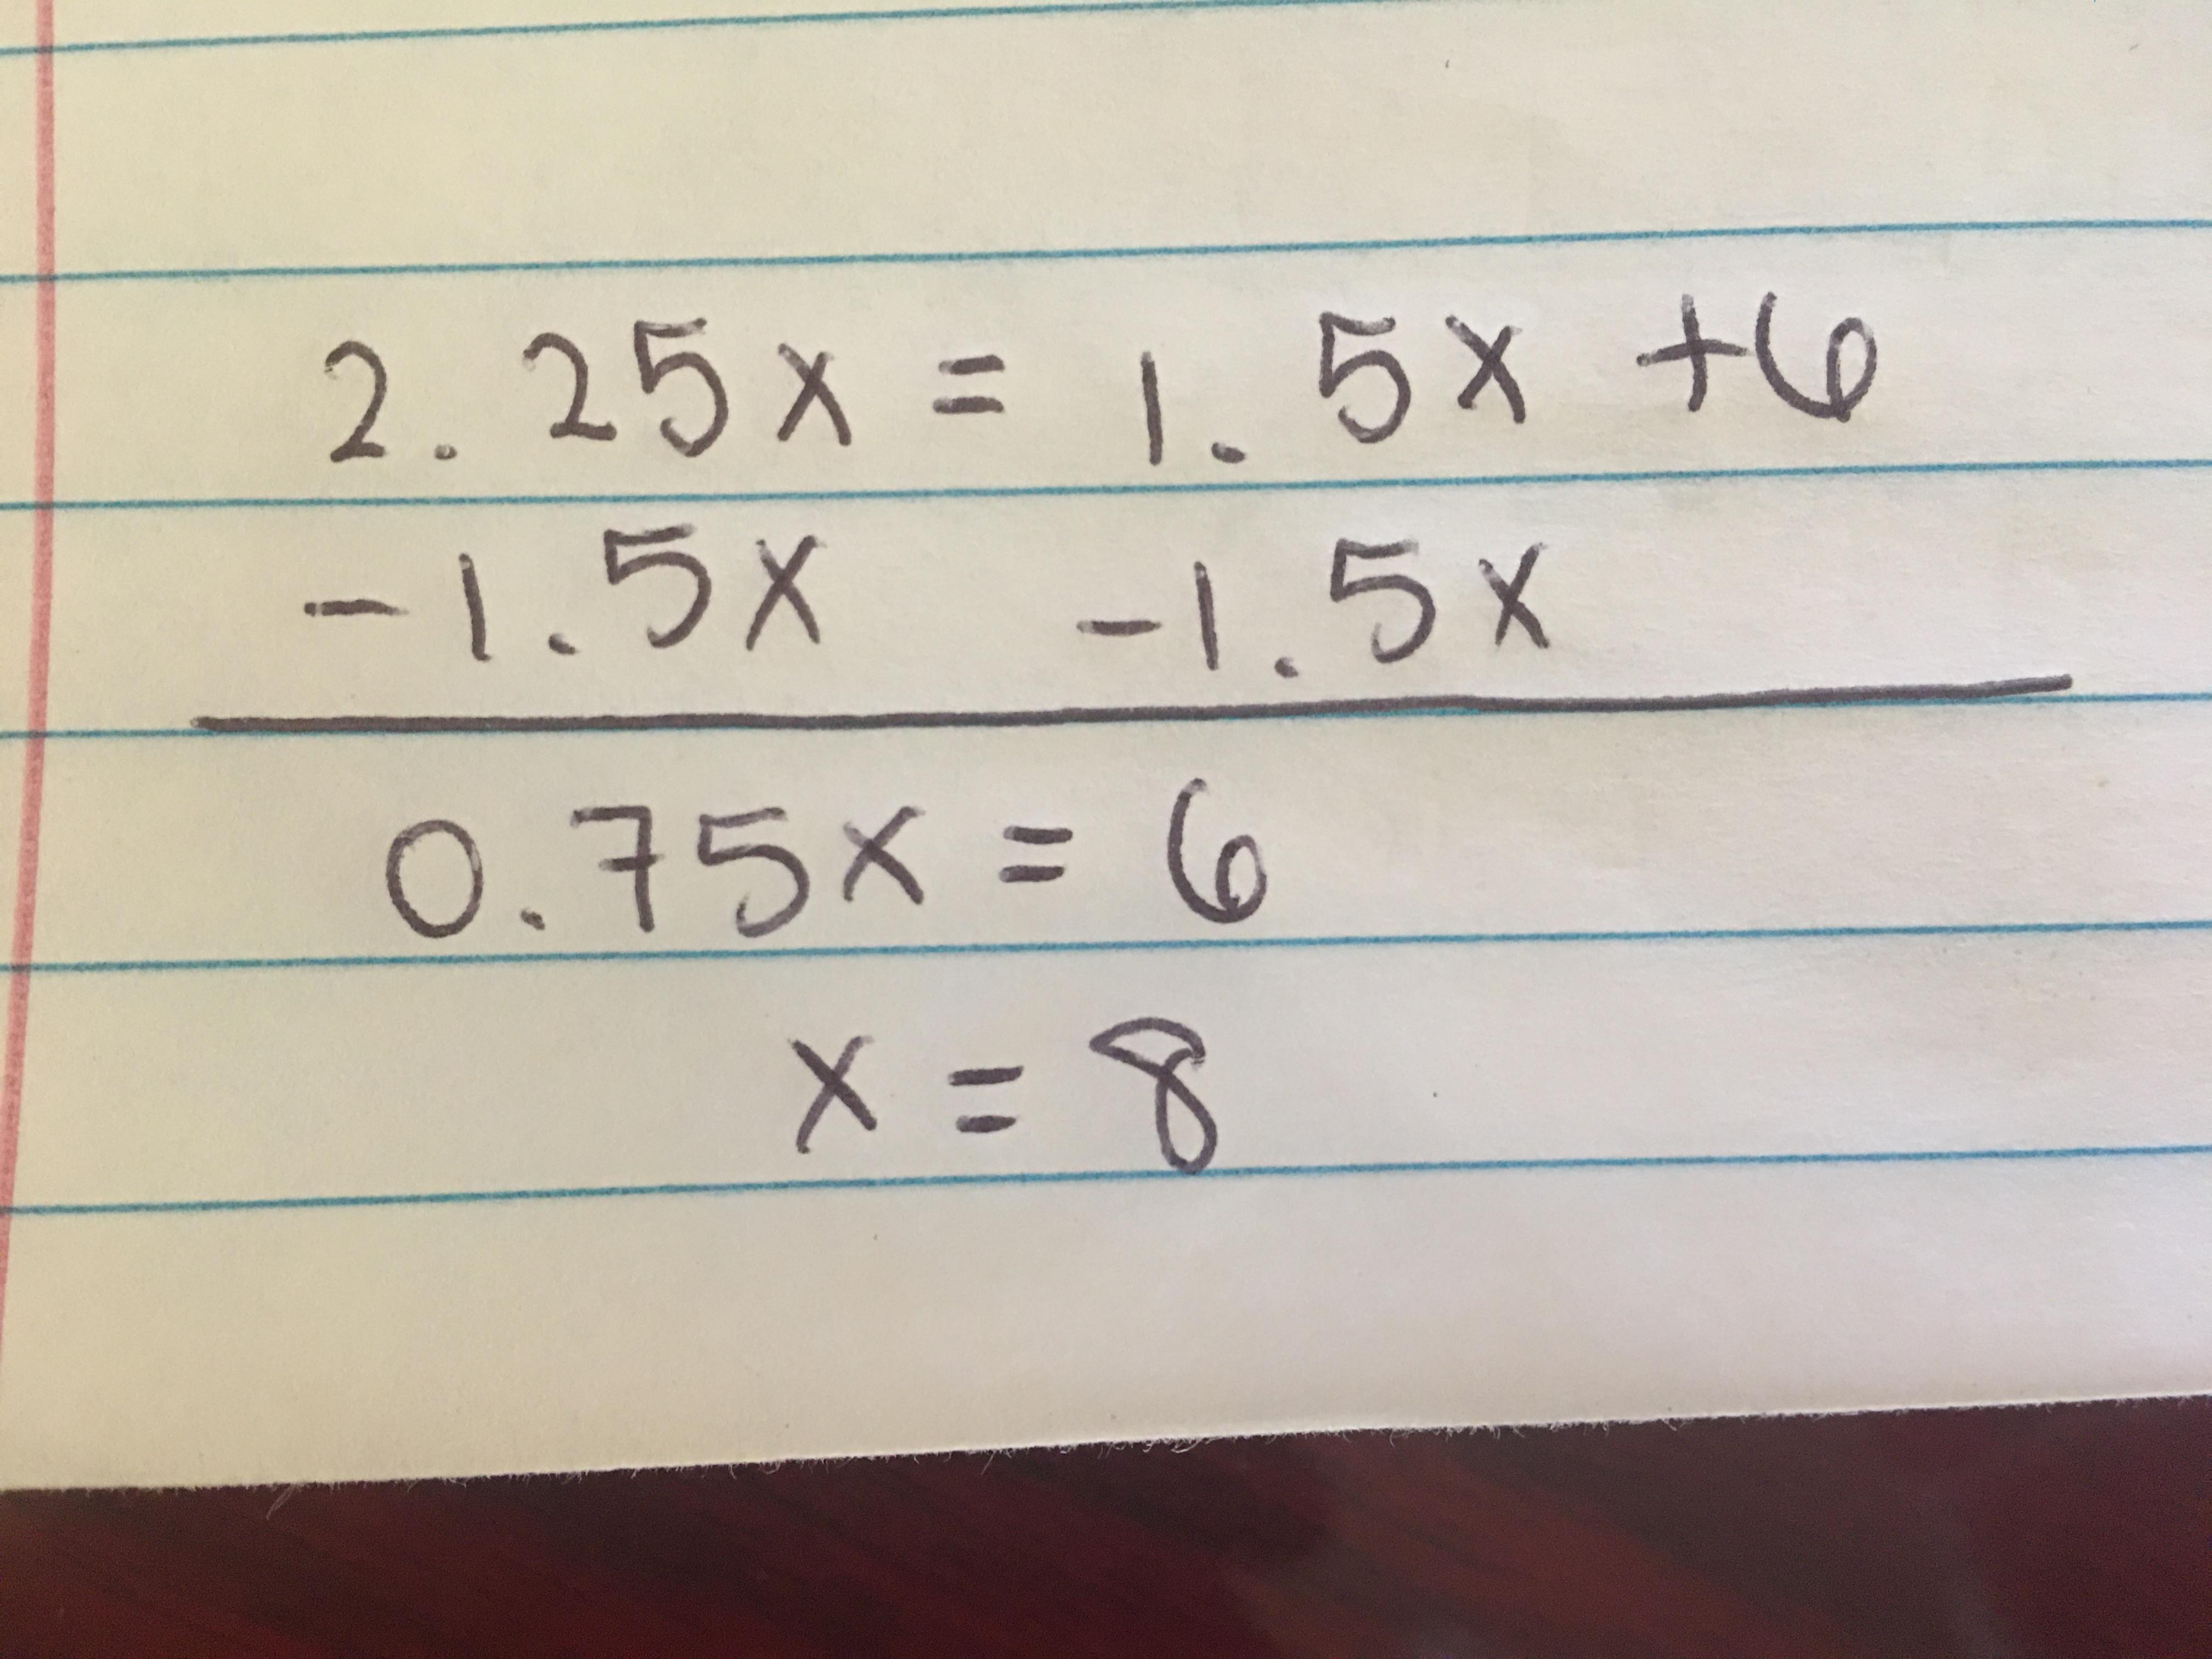 2.25x = 1.5x +6
-1.5x -1.5x
0.75x = 6
x = 8